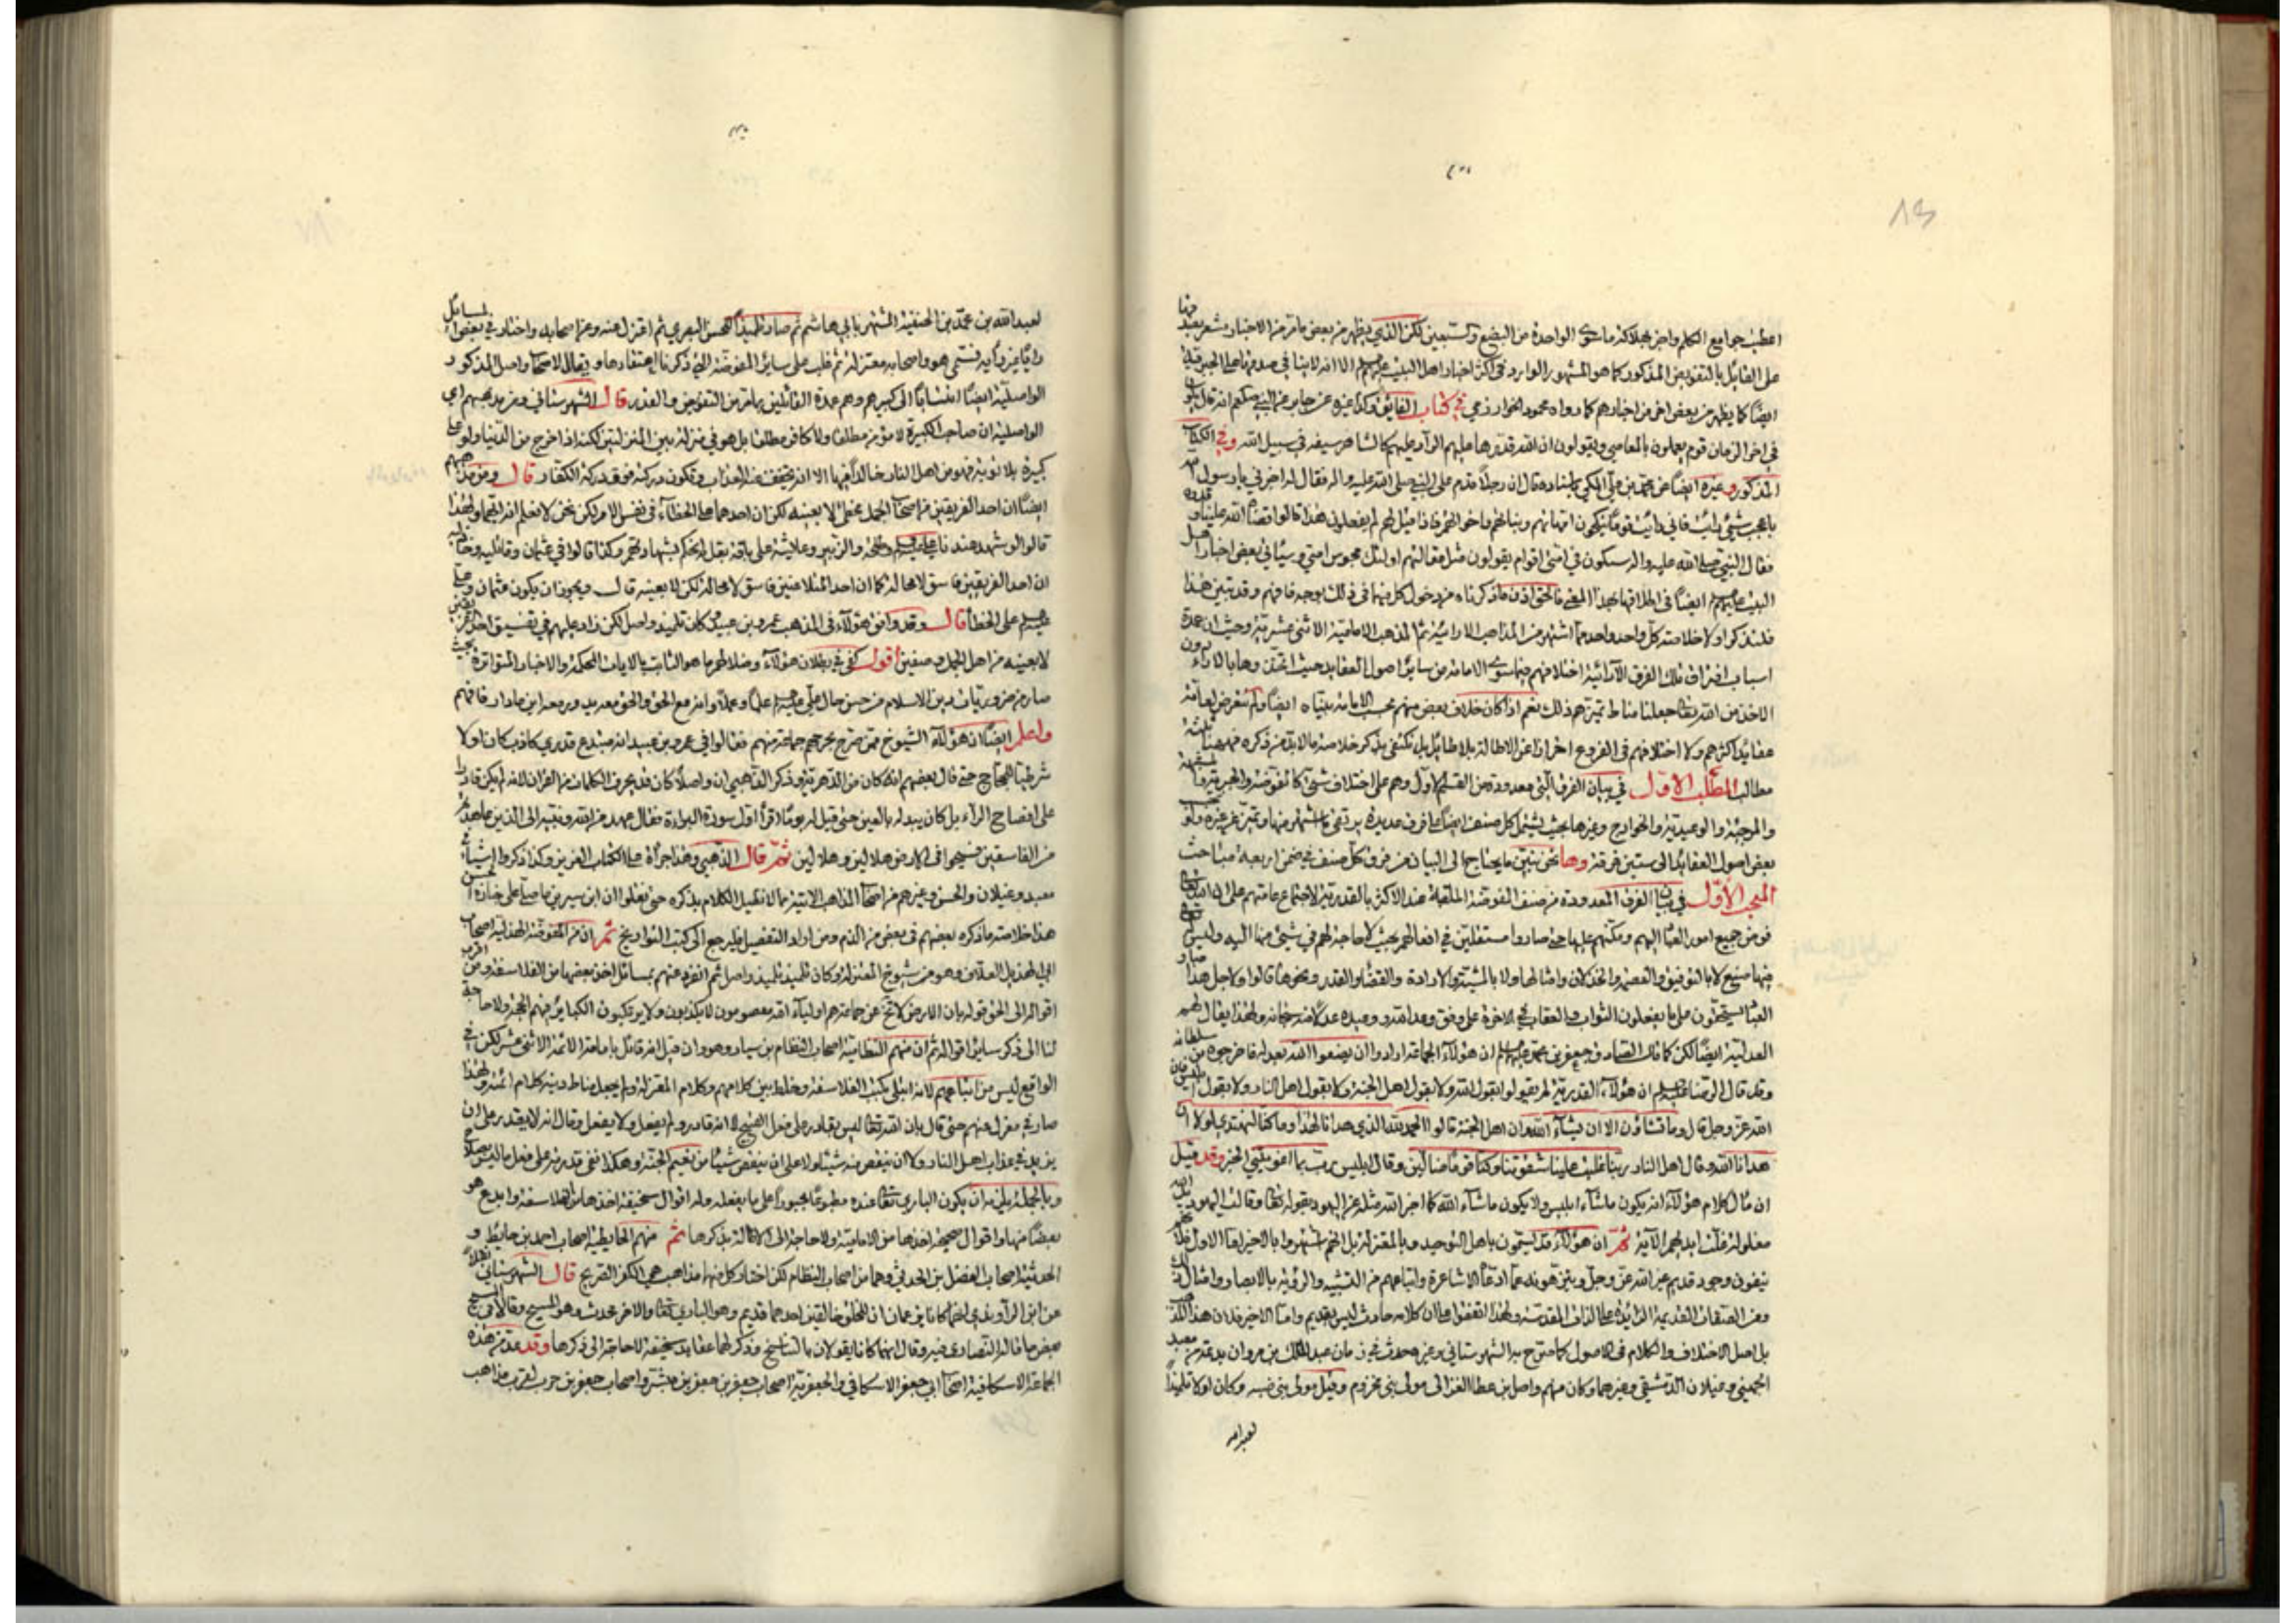 اعطيت جوامع الكلم واخر بجلاكثر ماسوى الواحدة من البضع والسبعين لكن الذي يظهر من بعض ما مر من الاخبار مشعر بعيد
على القايل بالتفويض المذكور كما هو المشهور الوارد في اكثر اخبار اهل البيت عليهم السلام الا انه لا ينافي صدقها على الجبرية
ايضًا كما يظهر من بعض اخر من اخبارهم كما رواه محمود الخوارزمي في كتاب الفايق وكذا غيره عن جابر عن النبي صلعم انه قال
في اخر الزمان قوم يعملون بالمعاصي ويقولون ان الله قدرها عليهم الراد عليهم كالشاهر سيفه في سبيل الله وفي الكتاب
المذكور وغيره ايضًا عن محمد بن علي المكي باسناده قال ان رجلًا قدم على النبي صلى الله عليه واله فقال له اخبرني يا رسول الله
باعجب شئ رأيت قال رأيت قومًا ينكحون امهاتهم وبناتهم واخواتهم فاذا قيل لهم لم تفعلون هذا قالوا قضاه الله علينا وقدره
فقال النبي صلى الله عليه واله سيكون في امتي اقوام يقولون مثل مقالتهم اولئك مجوس امتي وسيأتي بعض اخبار اهل
البيت عليهم السلام ايضًا في اطلاقها بهذا المعنى فالحق اذن ما ذكرناه من دخول كل منهما في ذلك بوجه فافهم وقد تبين هذا
فلنذكر اولًا خلاصة كل واحد واحد مما اشتهر من المذاهب الارائية ثم المذهب الامامية الاثنى عشرية وحيث ان عمدة
اسباب افتراق تلك الفرق الآرائية اختلافهم فيما سوى الامامة من ساير اصول العقايد حيث اخذوها بالاراء دون
الاخذ من الله تعالى جعلنا مناط تميزهم ذلك نعم اذا كان خلاف بعض منهم بحسب الامامة بيناه ايضًا ولم نتعرض لعامة
عقايد اكثرهم ولا اختلافهم في الفروع احترازًا عن الاطالة بلا طايل بل نكتفى بذكر خلاصة ما لا بد من ذكره فههنا ثلثة
مطالب المطلب الاول في بيان الفرق التي معدودة من القسم الاول وهم على اختلاف شتى كالمفوضة والجبرية والمشبهة
والمرجئة والوعيدية والخوارج وغيرها بحيث يشتمل كل صنف ايضًا على فرق عديدة
بعض اصول العقايد الى ستين فرقة وها نحن نبين ما يحتاج الى البيان من فرق كل صنف في ضمن اربعة مباحث
المبحث الاول في بيان الفرق المعدودة من صنف المفوضة الملقبة عند الاكثر بالقدرية لاجتماع عامتهم على ان الله تعالى
فوض جميع امور العباد اليهم ومكنهم عليها حتى صاروا مستقلين في افعالهم بحيث لا حاجة لهم في شئ منها اليه وليس له
فيها صنع لا بالتوفيق والعصمة والخذلان وامثالها ولا بالمشية والارادة والقضاء والقدر ونحوها قالوا ولاجل هذا صار
العباد يستحقون على ما يفعلون الثواب والعقاب في الاخرة على وفق وعد الله ووعيده عدلًا منه سبحانه ولهذا يقال لهم
العدلية ايضًا لكن كما قال الصادق جعفر بن محمد عليهم السلام ان هؤلاء الجماعة ارادوا ان يصفوا الله بعدله فاخرجوه من سلطانه
وقد قال الرضا عليه السلام ان هؤلاء القدرية لم يقولوا بقول الله ولا بقول اهل الجنة ولا بقول اهل النار ولا بقول ابليس فان
الله عز وجل قال وما تشاؤن الا ان يشاء الله وان اهل الجنة قالوا الحمد لله الذي هدانا لهذا وما كنا لنهتدي لولا ان
هدانا الله وقال اهل النار ربنا غلبت علينا شقوتنا وكنا قومًا ضالين وقال ابليس رب بما اغويتني الخبر وقد قيل
ان مآل كلام هؤلاء انه يكون ما شاء ابليس ولا يكون ما شاء الله كما اخبر الله مثله عن اليهود بقوله تعالى وقالت اليهود يد الله
مغلولة غلت ايديهم الآية ثم ان هؤلاء قد يسمون باهل التوحيد وبالمعتزلة بل انهم اشتهروا بالاخير اما الاول فلانهم
ينفون وجود قديم غير الله عز وجل وينزهونه عما ادعاه الاشاعرة واتباعهم من التشبيه والرؤية بالابصار وامثال ذلك
ومن الصفات القديمة الزايدة على الذات المقدسة ولهذا اتفقوا على ان كلامه حادث ليس بقديم واما الاخير فلان هذا المذهب
بل اصل الاختلاف والكلام في الاصول كما صرح به الشهرستاني وغيره حدث في زمان عبد الملك بن مروان بدعة من معبد
الجهني وغيلان الدمشقي وغيرهما وكان منهم واصل بن عطا الغزالى مولى بني مخزوم وقيل مولى بني ضبه وكان اولا تلميذًا
لعبد الله
لعبد الله بن محمد بن الحنفية المشتهر بابي هاشم ثم صار تلميذًا للحسن البصري ثم اعتزل عنه وعن اصحابه واختار في بعض المسائل
رايًا غير رأيه فتسمى هو واصحابه معتزلة ثم غلب على ساير المفوضة التي ذكرنا اعتقادها ويقال لاصحاب واصل المذكور
الواصلية ايضًا انتسابًا الى كبيرهم وهم عمدة القائلين بما مر من التفويض والقدر قال الشهرستاني ومن مذهبهم اي
الواصلية ان صاحب الكبيرة لا مؤمن مطلقًا ولا كافر مطلقا بل هو في منزلة بين المنزلتين لكنه اذا خرج من الدنيا ولو على
كبيرة بلا توبة فهو من اهل النار خالدًا فيها الا انه يخفف عنه العذاب وتكون دركته فوق دركة الكفار قال ومن مذهبهم
ايضًا ان احد الفريقين من اصحاب الجمل مخطئ لا بعينه لكن ان احدهما على الخطاء في نفس الامر لكن نحن لا نعلم انه ايهما ولهذا
قالوا لو شهد عندنا علي عليه السلام وطلحة والزبير وعايشة على باقة بقل لم نحكم بشهادتهم وكذا قالوا في عثمان وقاتليه وخاذليه
ان احد الفريقين فاسق لا محالة كما ان احد المتلاعنين فاسق لا محالة لكن لا بعينه قال ويجوز ان يكون عثمان وعلي
عليه السلام على الخطأ قال وقد وافق هؤلاء في المذهب عمرو بن عبيد وكان تلميذ واصل لكن زاد عليهم في تفسيق احد الفريقين
لا بعينه من اهل الجمل وصفين اقول كفى في بطلان هؤلاء وضلالتهم ما هو الثابت بالايات المحكمة والاخبار المتواترة بحيث
صار من ضروريات دين الاسلام من حسن حال علي عليه السلام علمًا وعملًا وانه مع الحق والحق معه يدور معه اين ما دار فافهم
واعلم ايضًا ان هؤلاء الشيوخ ممن صرح بجرحهم جماعة منهم فقالوا في عمرو بن عبيد انه مبتدع قدري كاذب كان اولا
شرطيًا للحجاج حتى قال بعضهم انه كان من الدهرية وذكر الذهبي ان واصلًا كان قد يحرف الكلمات من القران لانه لم يكن قادرا
على افصاح الراء بل كان يبدله بالغين حتى قيل له يومًا اقرأ اول سورة البراءة فقال عهد من الله ونبيه الى الذين عاهدتم
من الفاسقين فسيحوا في الارض هلالين وهلالين ثم قال الذهبي وهذا جرأة على الكتاب العزيز وكذا ذكروا اشياء في
معبد وغيلان والحسن وغيرهم من اصحاب المذاهب الاتية مما لا نطيل الكلام بذكره حتى نقلوا ان ابن سيرين ما صلى على جنازة الحسن
هذا خلاصة ما ذكره بعضهم في بعض من الذم ومن اراد التفصيل فليرجع الى كتب التواريخ ثم ان من المفوضة الهذلية اصحاب
ابي الهذيل العلاف وهو من شيوخ المعتزلة وكان تلميذ تلميذ واصل ثم انفرد عنهم بمسائل اخذ بعضها من الفلاسفة ومن اقرب
اقواله الى الحق قوله بان الارض لا تخلو عن جماعة هم اولياء الله معصومون لا يكذبون ولا يرتكبون الكبائر فهم الحجة ولا حاجة
لنا الى ذكر ساير اقواله ثم ان منهم النظامية اصحاب النظام بن سيار وهو وان قيل انه قائل بامامة الائمة الاثنى عشر لكن في
الواقع ليس من اتباعهم لانه ابتلى بكتب الفلاسفة وخلط بين كلامهم وكلام المعتزلة ولم يجعل مناط دينه كلام ائمته ولهذا
صار في معزل عنهم حتى قال بان الله تعالى ليس بقادر على فعل القبيح لا انه قادر ولم يفعل ولا يفعل وقال انه لا يقدر على ان
يزيد في عذاب اهل النار ولا ان ينقص منه شيئًا ولا على ان ينقص شيئًا من نعيم الجنة وهكذا نفى قدرته على فعل ما ليس صلاحًا
وبالجملة يلزمه ان يكون الباري تعالى عنده مطبوعًا مجبورًا على ما يفعله وله اقوال سخيفة اخذها من الفلاسفة وابدع هو
بعضًا منها واقوال صحيحة اخذها من الامامية ولا حاجة الى الاطالة بذكرها ثم منهم الحايطية اصحاب احمد بن حايط و
الحدثية اصحاب الفضل بن الحدثي وهما من اصحاب النظام لكن اختار كل منهما مذاهب هي الكفر الصريح قال الشهرستاني نقلًا
عن ابن الراوندي انهما كانا يزعمان ان للخلق خالقين احدهما قديم وهو الباري تعالى والاخر محدث وهو المسيح وقالا في المسيح
بعض ما قاله النصارى فيه وقال انهما كانا يقولان بالتناسخ وذكر لهما عقايد سخيفة لا حاجة الى ذكرها وقد عد من هذه
الجماعة الاسكافية اصحاب ابي جعفر الاسكافي والجعفرية اصحاب جعفر بن مبشر واصحاب جعفر بن حرب لقرب مذاهب